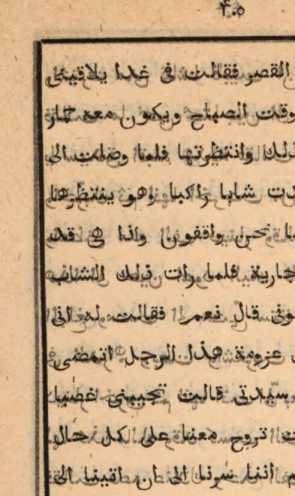 ٤٠٥
القصر فقالت فى غدا يلاقينى
وقت الصباح ويكون معه حمار
ذلك وانتظرتها فلما وصلت الى
شابا راكبا وهو ينتظرها
نحن واقفون واذا هى قد
جارية فلما رات ذلك الشاب
قال نعم فقالت له انا
عزومة هذا الرجل اتمضى
سيدتى قالت تجيبنى غصبا
تروح معنا على كل حال
اننا سرنا الى ان اتينا الى